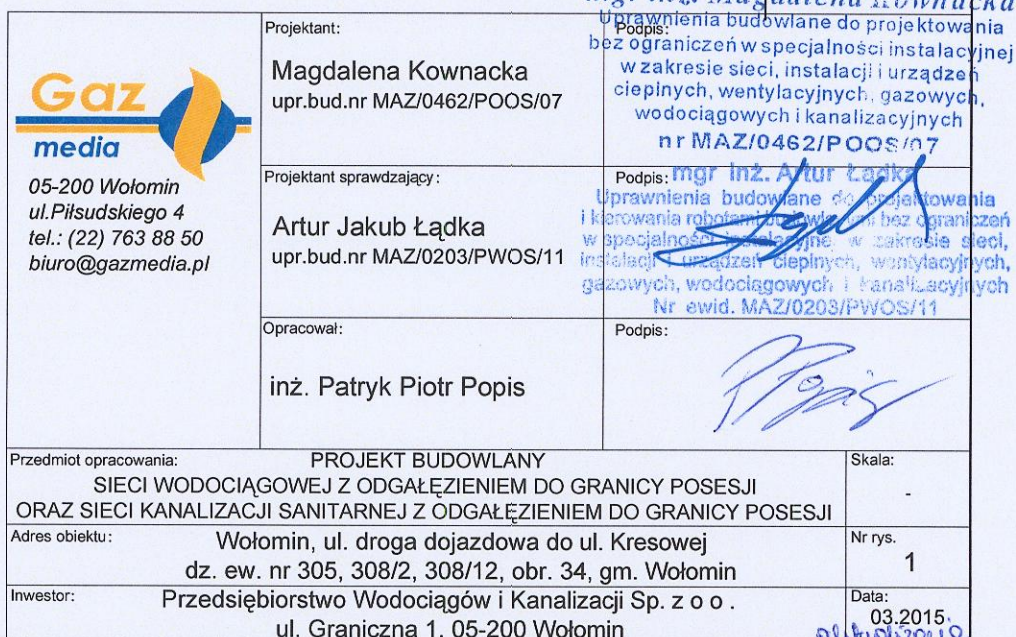 Gaz
media
05-200 Wołomin
ul.Piłsudskiego 4
tel.: (22) 763 88 50
biuro@gazmedia.pl
Projektant:
Magdalena Kownacka
upr.bud.nr MAZ/0462/POOS/07
Podpis:
Magdalena Kownacka
Uprawnienia budowlane do projektowania
bez ograniczeń w specjalności instalacyjnej
w zakresie sieci, instalacji i urządzeń
cieplnych, wentylacyjnych, gazowych,
wodociągowych i kanalizacyjnych
nr MAZ/0462/POOS/07
Projektant sprawdzający:
Artur Jakub Łądka
upr.bud.nr MAZ/0203/PWOS/11
Podpis:
mgr inż. Artur Łądka
Uprawnienia budowlane do projektowania
i kierowania robotami budowlanymi bez ograniczeń
w specjalności instalacyjnej w zakresie sieci,
instalacji i urządzeń cieplnych, wentylacyjnych,
gazowych, wodociągowych i kanalizacyjnych
Nr ewid. MAZ/0203/PWOS/11
Opracował:
inż. Patryk Piotr Popis
Podpis:
PPopis
Przedmiot opracowania:
PROJEKT BUDOWLANY
SIECI WODOCIĄGOWEJ Z ODGAŁĘZIENIEM DO GRANICY POSESJI
ORAZ SIECI KANALIZACJI SANITARNEJ Z ODGAŁĘZIENIEM DO GRANICY POSESJI
Skala:
-
Adres obiektu:
Wołomin, ul. droga dojazdowa do ul. Kresowej
dz. ew. nr 305, 308/2, 308/12, obr. 34, gm. Wołomin
Nr rys.
1
Inwestor:
Przedsiębiorstwo Wodociągów i Kanalizacji Sp. z o o .
ul. Graniczna 1, 05-200 Wołomin
Data:
03.2015